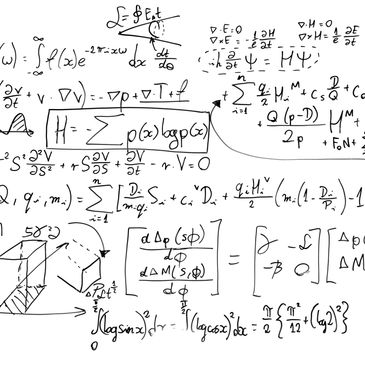 ℒ = ∮ E₀t
∇·E=0 ∇·H=0
∇×E = -1/c ∂H/∂t ∇×H = 1/c ∂E/∂t
(ω) = ∫_{-∞}^{∞} f(x)e^{-2πixω} dx dt/dθ
iħ ∂/∂t Ψ = HΨ
(∂v/∂t + v·∇v) = -∇p + ∇·T + f
+ Σ_{i=1}^{n} q_i/2 H_i^M + C_s D/Q + C_o
+ Q(p-D)/2p H^M
+ F₀N +
H = -Σ p(x) log p(x)
²S² ∂²V/∂S² + rS ∂V/∂S + ∂V/∂t - r·V = 0
Q, q_i, m_i) = Σ_{i=1}^{n} [D_i/(m_i q_i) S_i + C_i^v D_i + q_i H_i^v/2 (m_i(1 - D_i/P_i) - 1
[dΔp(sϕ)/dϕ
dΔM(s,ϕ)/dϕ] = [γ -δ
-β 0] [Δp
ΔM
∫_0^{π/2} (log sin x)² dx = ∫_0^{π/2} (log cos x)² dx = π/2 {π²/12 + (log 2)²}